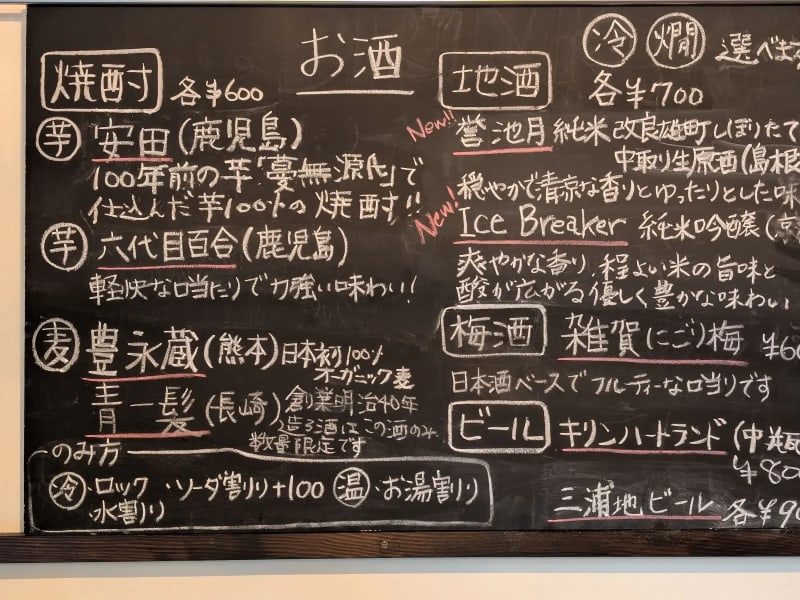 お酒
焼酎 各¥600
芋 安田(鹿児島)
100年前の芋「蔓無源氏」で
仕込んだ芋100%の焼酎!!
芋 六代目百合(鹿児島)
軽快な口当たりで力強い味わい!
麦 豊永蔵(熊本)日本初100%
オーガニック麦
青一髪(長崎)創業明治40年
造る酒はこの酒のみ
数量限定です
のみ方
冷・ロック ・ソーダ割り+100 温・お湯割り
・水割り
冷 燗 選べます
地酒 各¥700
New!! 誉池月 純米 改良雄町しぼりたて
中取り生原酒(島根
穏やかで清涼な香りとゆったりとした味
New! Ice Breaker 純米吟醸(京
爽やかな香り、程よい米の旨味と
酸が広がる優しく豊かな味わい
梅酒 雑賀にごり梅 ¥60
日本酒ベースでフルーティーな口当りです
ビール キリンハートランド(中瓶
¥80
三浦地ビール 各¥90